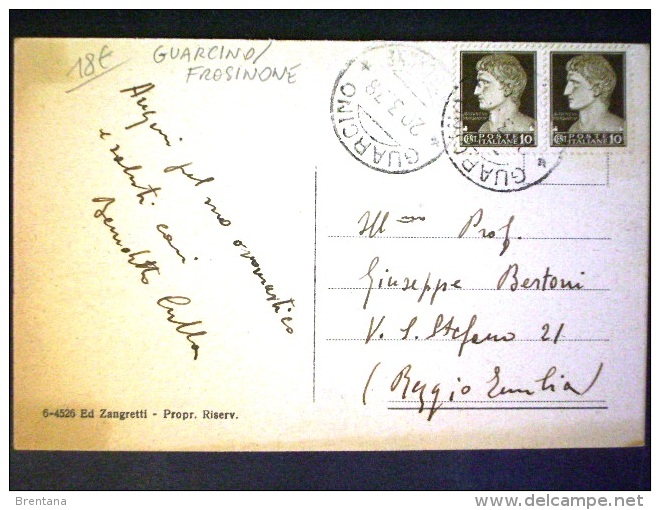 18€
GUARCINO/
FROSINONE
GUARCINO
20.3.38
GUARCINO
POSTE
ITALIANE
CENT
10
POSTE
ITALIANE
CENT
10
Auguri pel suo onomastico
e saluti cari
Benedetto
Ill mo Prof.
Giuseppe Bertoni
V. S. Stefano 21
(Reggio Emilia)
6-4526 Ed Zangretti - Propr. Riserv.
Brentana
delcampe.net